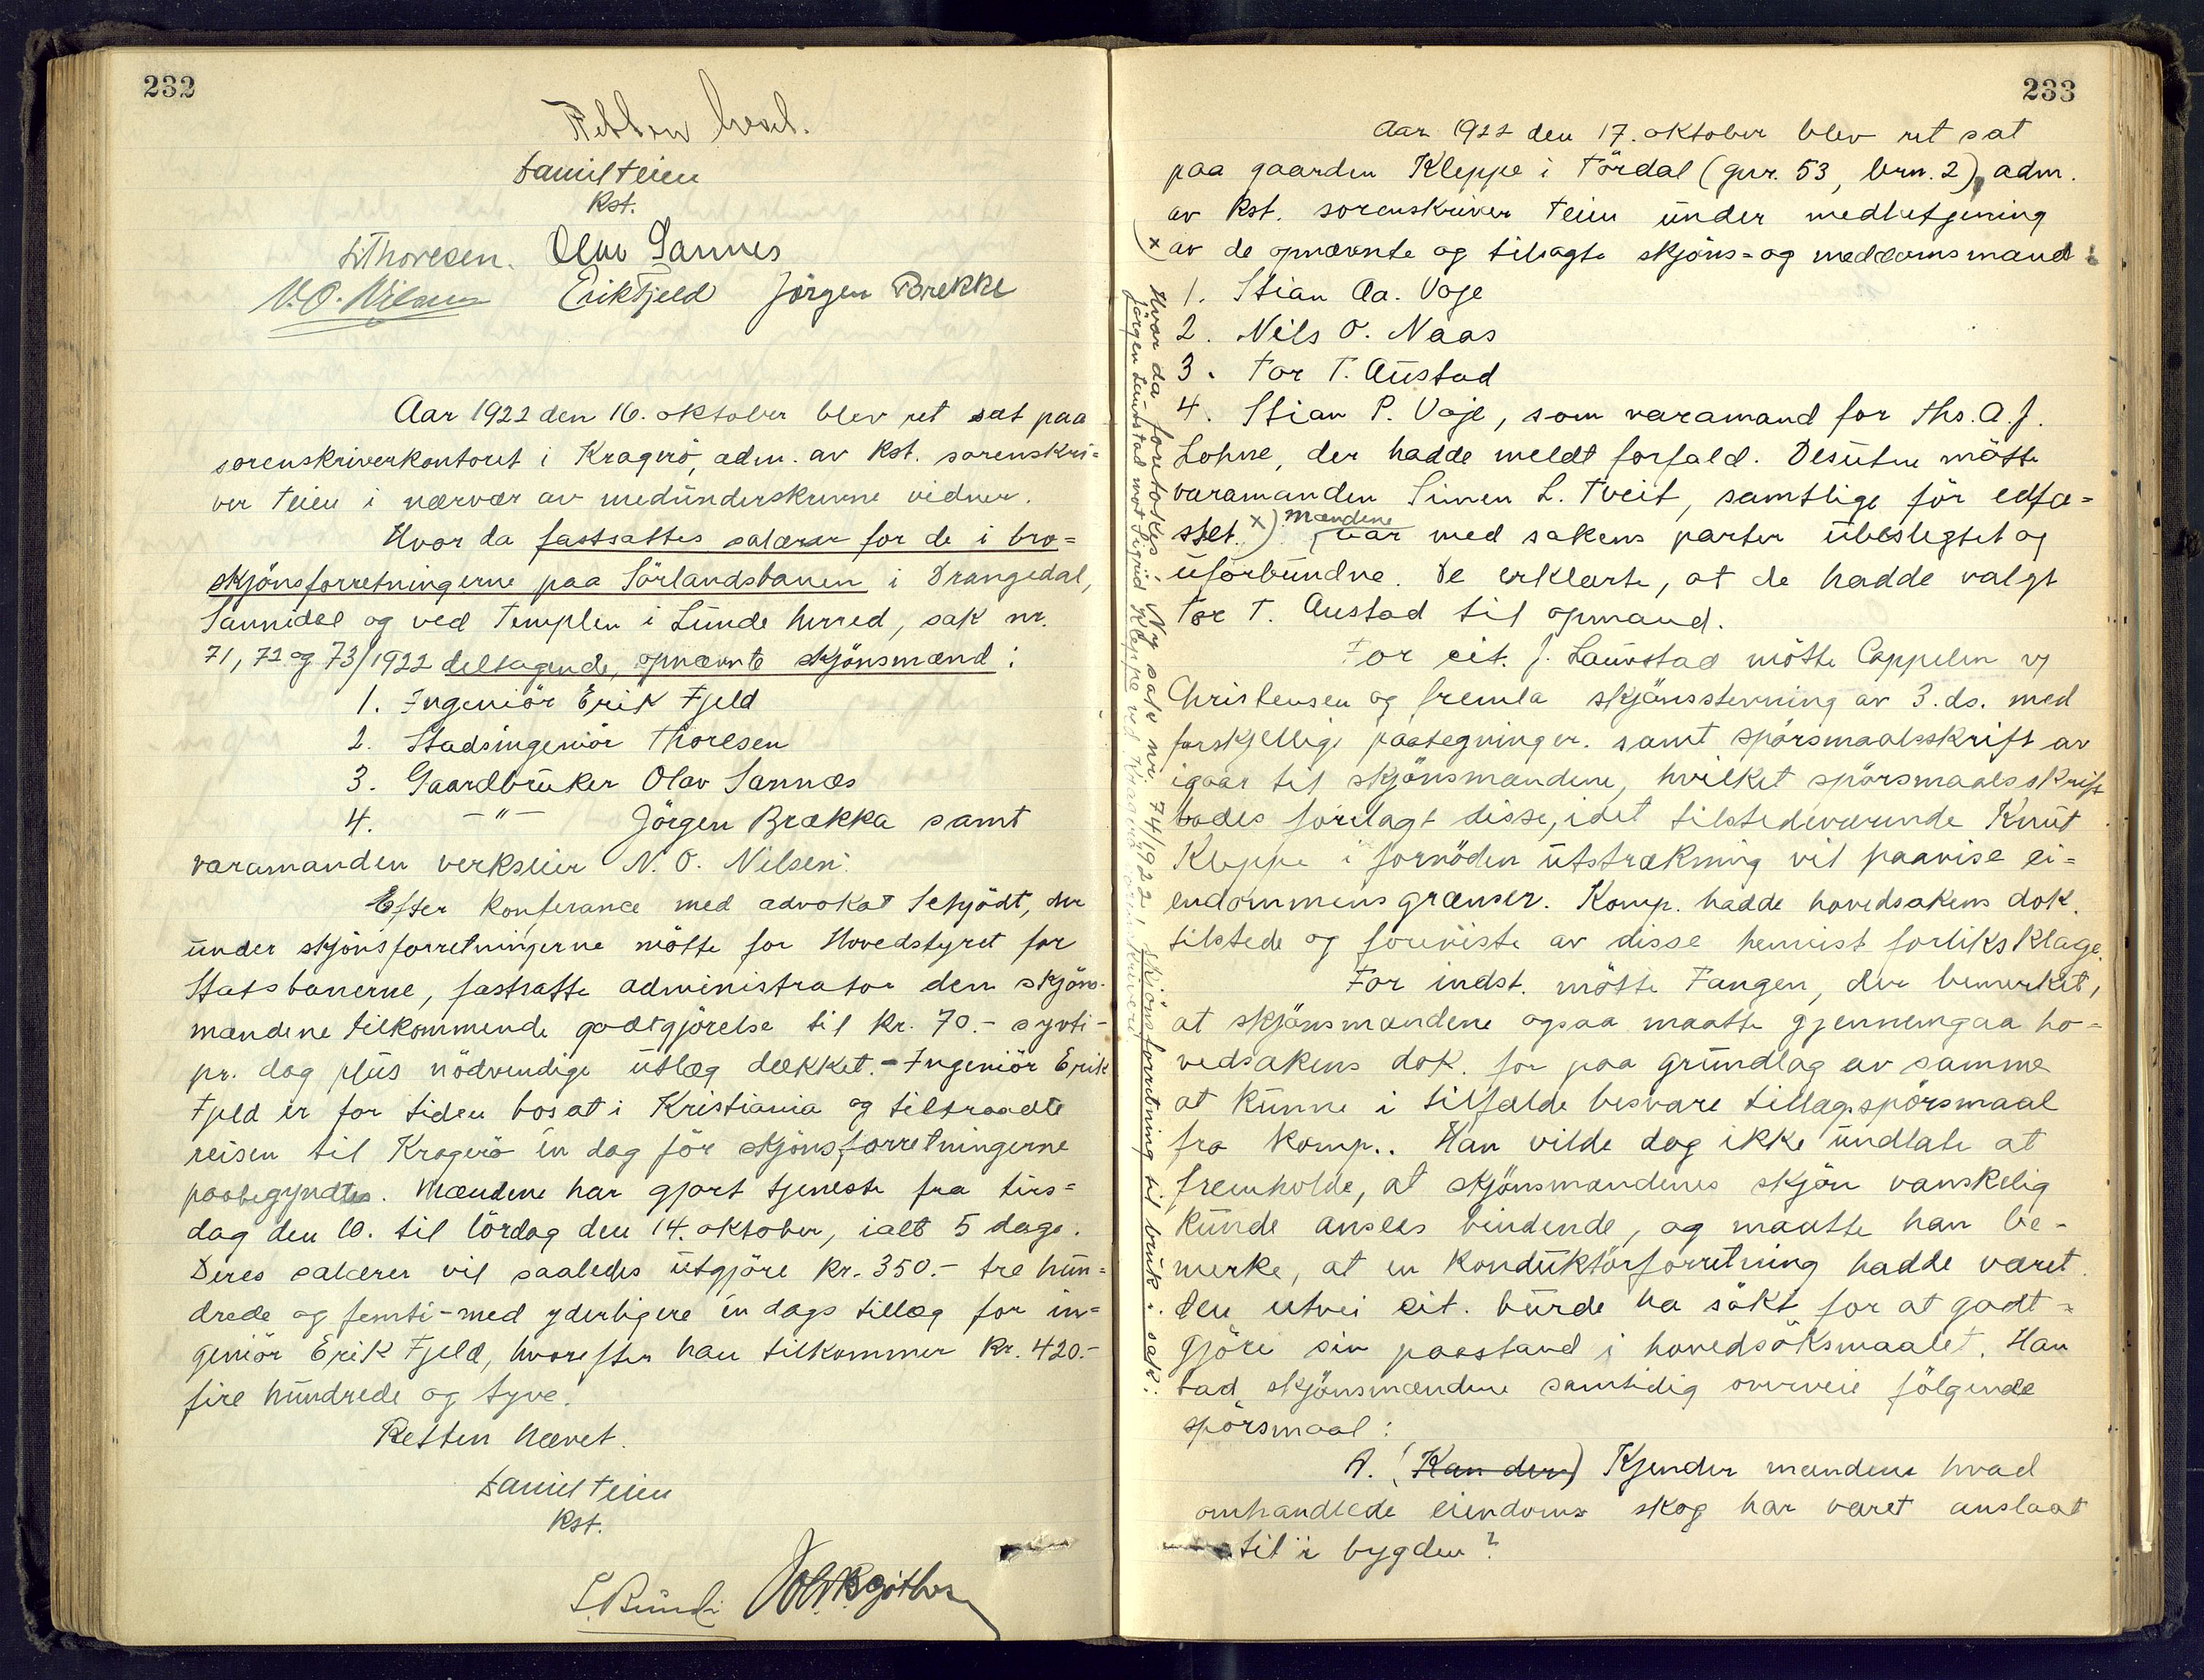 232
Retten hevet.
Daniel Teien
Kst.
S. Thoresen. Olav Sannes
N. O. Nilsen Erik Fjeld Jörgen Brekke
Aar 1922 den 16. oktober blev ret sat paa
sorenskriverkontoret i Kragerö, adm. av kst. sorenskri=
ver Teien i nærvær av medunderskrevne vidner.
Hvor da fastsattes salærer for de i bro=
skjönsforretningerne paa Sörlandsbanen i Drangedal,
Sannidal og ved Templen i Lunde herred, sak nr.
71, 72 og 73/1922 deltagende, opnævnte skjönsmænd:
1. Ingeniör Erik Fjeld
2. Stadsingeniör Thoresen
3. Gaardbruker Olav Sannæs
4. -"- Jörgen Brækka samt
varamanden verkseier N. O. Nilsen.
Efter konferance med advokat Schjödt, der
under skjönsforretningerne mötte for Hovedstyret for
Statsbanerne, fastsatte administrator den skjöns-
mændene tilkommende godtgjörelse til kr. 70.- sytti-
pr. dag plus nödvendige utlæg dækket. - Ingeniör Erik
Fjeld er for tiden bosat i Kristiania og tiltraadte
reisen til Kragerö en dag för skjönsforretningerne
paabegyndtes. Mændene har gjort tjeneste fra tirs=
dag den 10. til lördag den 14. oktober, ialt 5 dage.
Deres salærer vil saaledes utgjöre kr. 350.- tre hun=
drede og femti - med yderligere en dags tillæg for in=
geniör Erik Fjeld, hvorefter han tilkommer kr. 420.-
fire hundrede og tyve.
Retten hævet.
Daniel Teien
Kst.
233
Aar 1922 den 17. oktober blev ret sat
paa gaarden Kleppe i Tördal (gnr. 53, brn. 2), adm.
av kst. sorenskriver Teien under medbetjening
x av de opnævnte og tilsagte skjöns- og meddomsmænd:
1. Stian Aa. Voje
2. Nils O. Naas
3. Tor T. Austad
4. Stian P. Voje, som varamand for Ths. A. J.
Lohne, der hadde meldt forfald. Desuten mötte
varamanden Simen L. Tveit, samtlige för edfæ=
stet. x) Mændene var med sakens parter ubeslegtet og
uforbundne. De erklærte, at de hadde valgt
Tor T. Austad til opmand.
For cit. J. Launstad mötte Cappelen v/
Christensen og fremla skjönsstevning av 3. ds. med
forskjellige paategninger. samt spörsmaalsskrift av
igaar til skjönsmændene, hvilket spörsmaalsskrift
bades forelagt disse, idet tilstedeværende Knut
Kleppe i fornöden utstrækning vil paavise ei=
endommens grænser. Komp. hadde hovedsakens dok.
tilstede og foreviste av disse henvist forliksklage.
For indst. mötte Fangen, der bemerket,
at skjönsmændene ogsaa maatte gjennemgaa ho=
vedsakens dok. for paa grundlag av samme
at kunne i tilfælde besvare tillægsspörsmaal
fra komp.. Han vilde dog ikke undlate at
fremholde, at skjönsmændenes skjön vanskelig
kunde ansees bindende, og maatte han be-
merke, at en konduktörforretning hadde været
den utvei cit. burde ha sökt for at godt=
gjöre sin paastand i hovedsöksmaalet. Han
bad skjönsmændene samtidig overveie fölgende
spörsmaal:
A. (Kan der) Kjender mændene hvad
omhandlede eiendoms skog har været anslaat
til i bygden?
Hvor da foretokes: Ny sak nr. 74/1922: Skjönsforretning til bruk i sak:
Jörgen Launstad mot Sigrid Kleppe ved